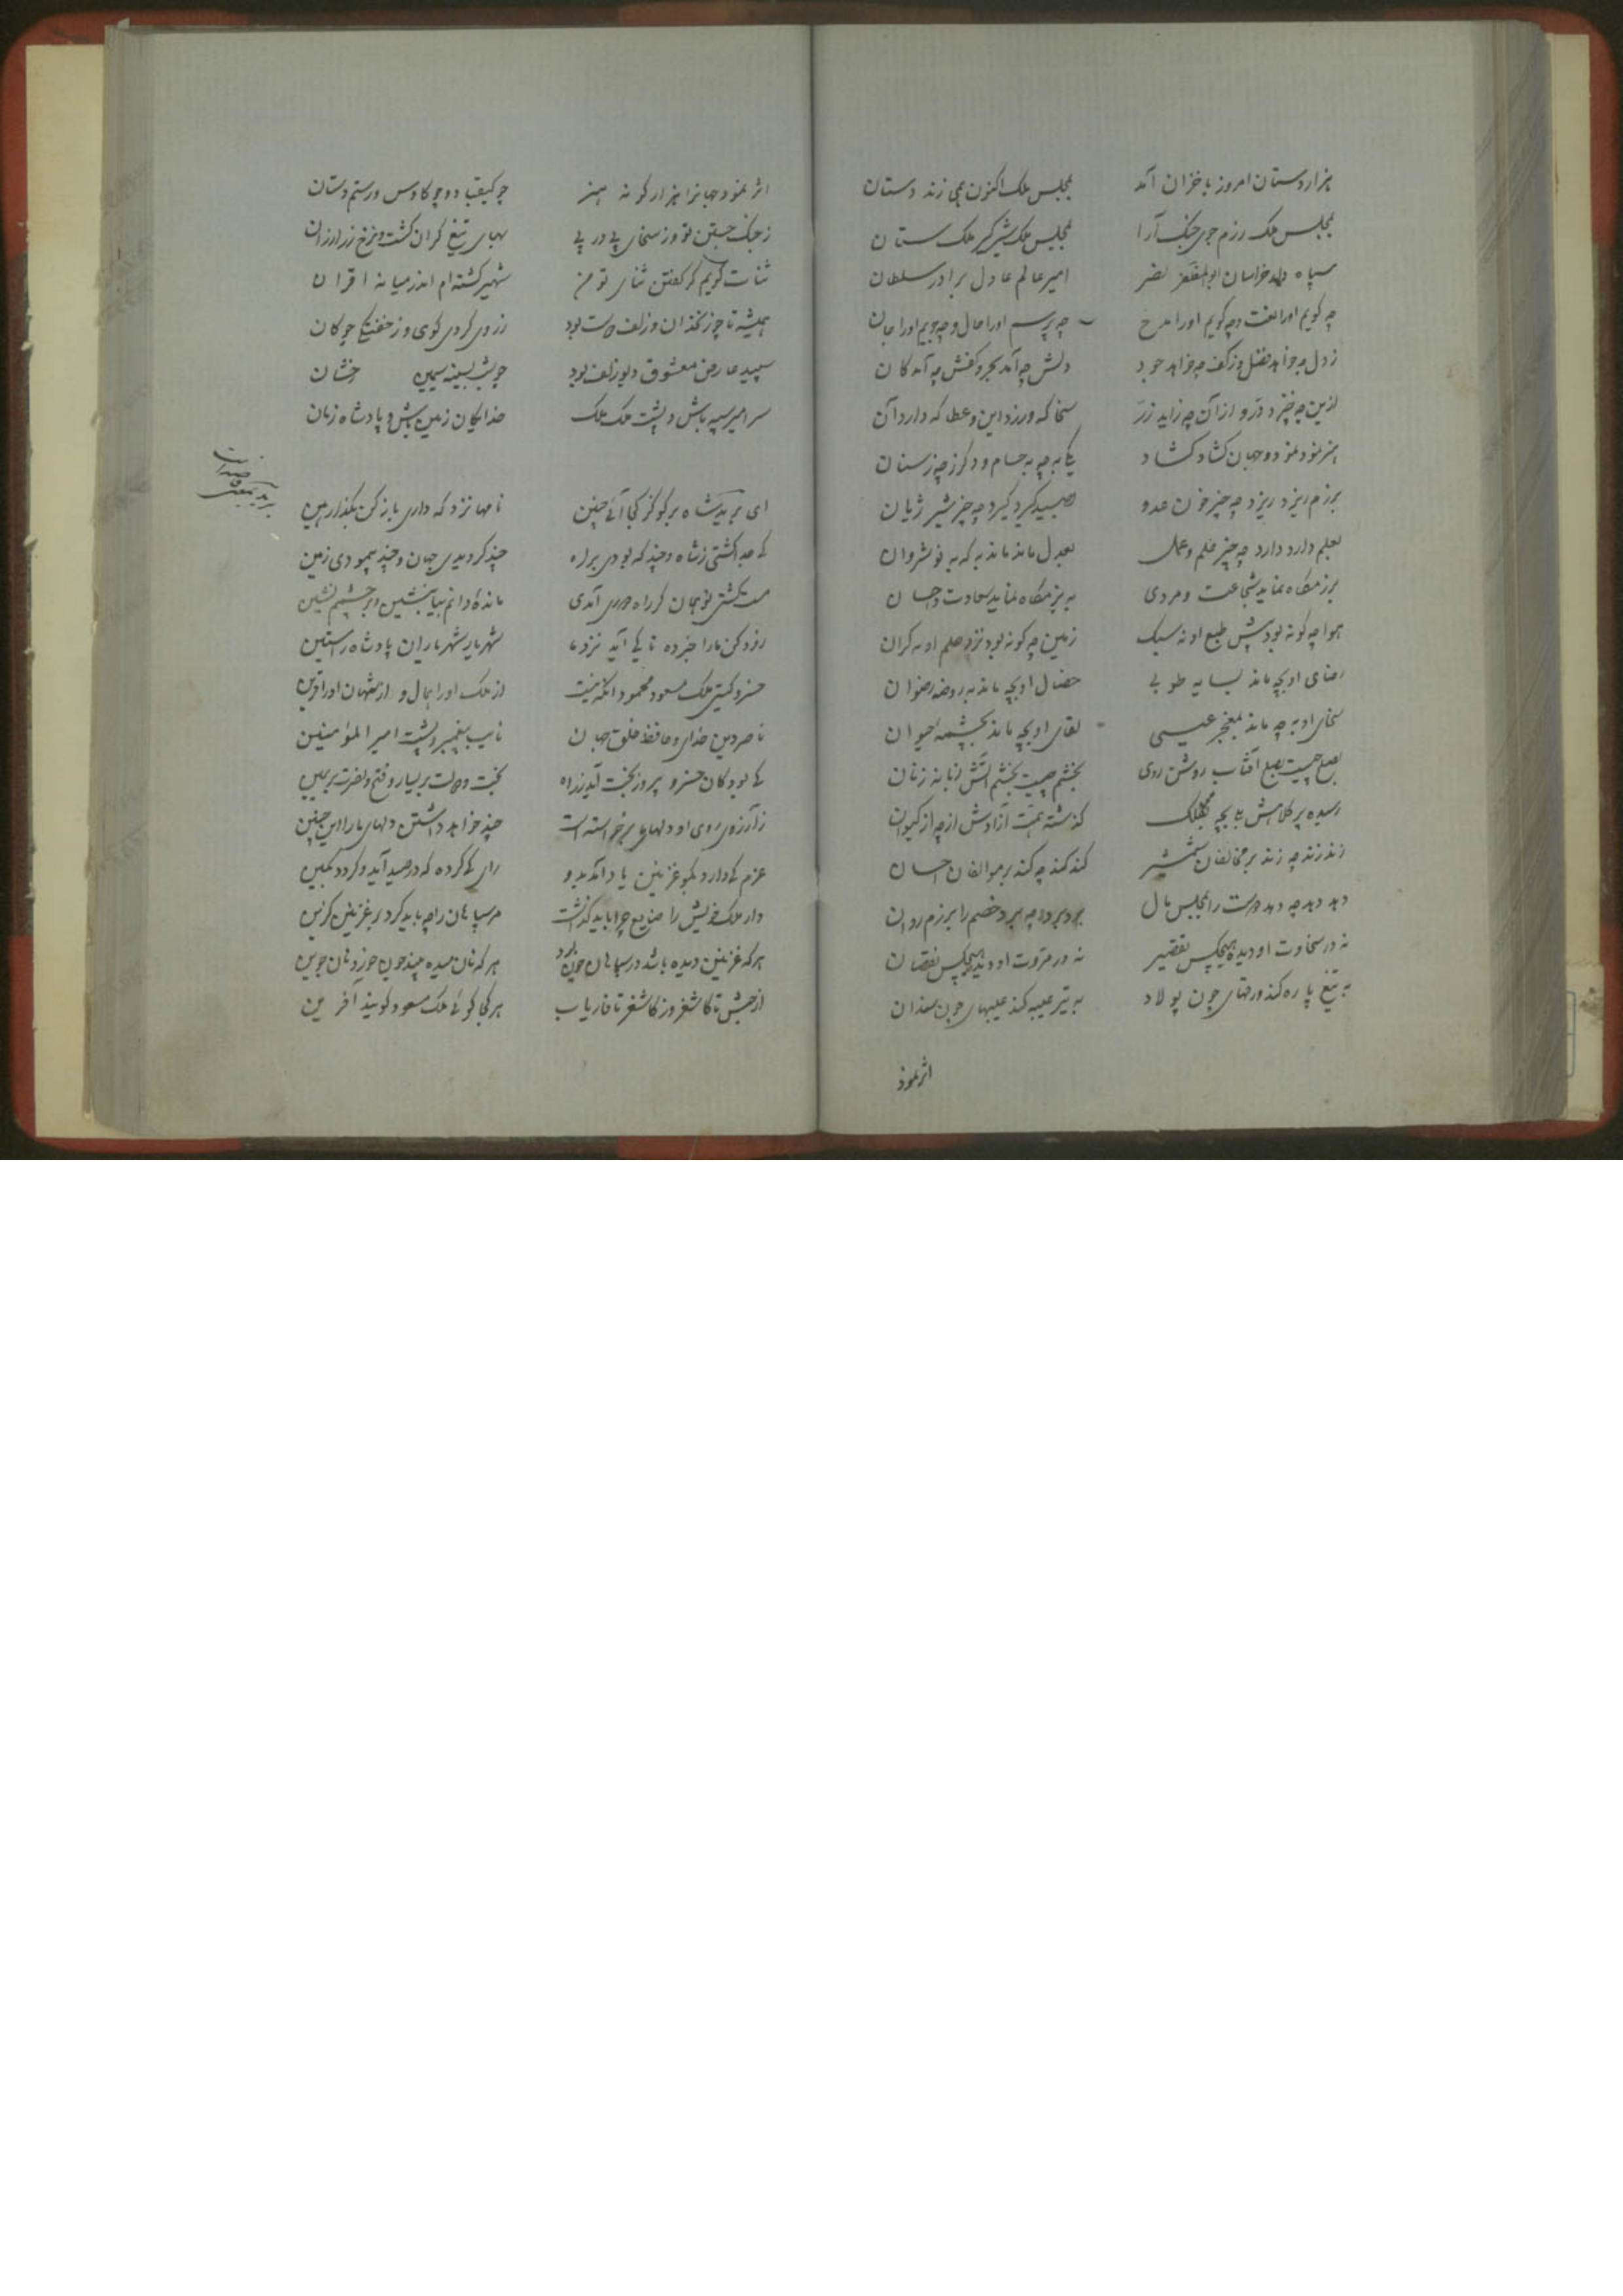 هزاردستان امروز با خزان آمد بمجلس ملک اکنون همی زند دستان
بمجلس ملک رزم جوی جنگ آرا بمجلس ملک شیرگیر ملک ستان
سپاه دار خراسان ابوالمظفر نصر امیر عالم عادل برادر سلطان
چه گویم اورا لغت و چه گویم اورا مدح چه پرسم اورا حال و چه جویم اورا جان
زدل چه خواهد فضل و زکف چه خواهد جود دلش چه آمد بحر و کفش چه آمد کان
ازین چه خیزد در و از آن چه زاید زر سخا که ورزد این و عطا که دارد آن
هنر نمود نمود و جهان گشاد گشاد یکا به چه به حسام و دگر ز چه ز سنان
برزم ریزد ریزد چه چیز خون عدو بصید گیرد گیرد چه چیز شیر ژیان
بعلم دارد دارد چه چیز علم و عمل بعدل ماند ماند به که به نوشروان
برزمگاه نماید شجاعت و مردی به بزمگاه نماید سعادت و احسان
هوا چه گونه بود پیش طبع او نه سبک زمین چه گونه بود نزد حلم او نه گران
رضای او بچه ماند بسایه طوبی خصال او بچه ماند به روضه رضوان
سخای او به چه ماند بمعجز عیسی لقای او بچه ماند بچشمه حیوان
بصلح چیست بصلح آفتاب روشن روی بخشم چیست بخشم آتش زبانه زنان
رسیده پر کلاهش تا بچه بفلک گذشته همت آزادش از چه از کیوان
زند زند چه زند بر مخالفان شمشیر کند کند چه کند بر موالفان احسان
دهد دهد چه دهد دوست را بمجلس مال برد برد چه برد خصم را برزم روان
نه در سخاوت او دیده هیچکس تقصیر نه در مروت او دیده هیچکس نقصان
به تیغ پاره کند ورقهای چون پولاد به تیر عیبه کند عیبهای چون سندان
اثر نمود
اثر نمود جهانرا هزار گونه هنر چو کیقباد و چو کاوس و رستم دستان
ز جنگ جستن تو وز سخای پی در پی بهای تیغ گران گشت و نرخ زر ارزان
ثنات گویم کز گفتن ثنای تو من شهیر گشته ام اندر میانه اقران
همیشه تا چو زنخدان و زلف دوست بود ز روی گردی گوی و ز خفتگی چوگان
سپید عارض معشوق و زلف بود
سر امیر سپه باش و پشت ملک ملک خدایگان زمین باش و پادشاه زمان
ای برید شاه برگو کز کجا آئی چنین نامها نزد که داری باز کن بگذار هین
کی جدا گشتی ز شاه و چند گه بودی براه چند گردیدی جهان و چند پیمودی زمین
سست گشتی تو همان کز راه دور آمدی مانده دانم بیا بنشین و بر چشمم نشین
زود کن مارا خبر ده تا کی آید نزد ما شهریار شهریاران پادشاه راستین
خسرو گیتی ملک مسعود محمود آنکه نیست از ملک اورا همال و از شهان اورا قرین
ناصر دین خدای و حافظ خلق جهان نایب پیغمبر و پشت امیر المؤمنین
کی بود کان خسرو پیروز بخت آید ز راه بخت و دولت بر یسار و فتح و نصرت بر یمین
ز آرزوی روی او دلهای ما برخواسته است چند خواهد داشتن دلهای ما را این چنین
عزم کی دارد که غزنین یاد آید بدو رای کی کرده که در صید آید و گردد مکین
دار ملک خویش را ضایع چرا باید گذاشت مر سپاهان را چه باید کرد بر غزنین گزین
هر که غزنین دیده باشد در سپاهان چون بود هر که نان میده بیند چون خورد نان جوین
از حبش تا کاشغر وز کاشغر تا فاریاب هر کجا گوئی ملک مسعود گویند آفرین